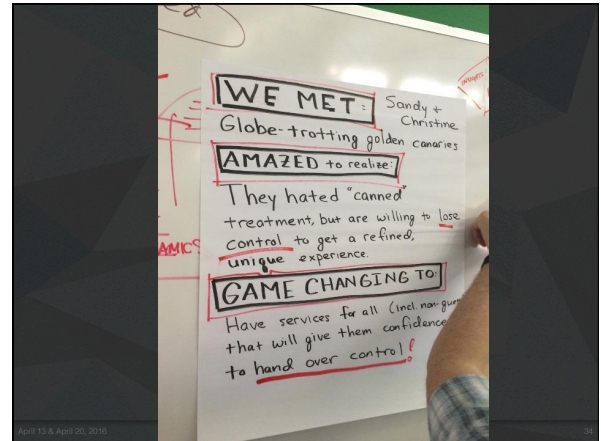 WE MET:
Sandy +
Christine
Globe-trotting golden canaries
AMAZED to realize:
They hated "canned"
treatment, but are willing to lose
control to get a refined,
unique experience.
GAME CHANGING TO:
Have services for all (incl. non-
that will give them confidence
to hand over control!
AMICS
April 13 & April 20, 2016
34